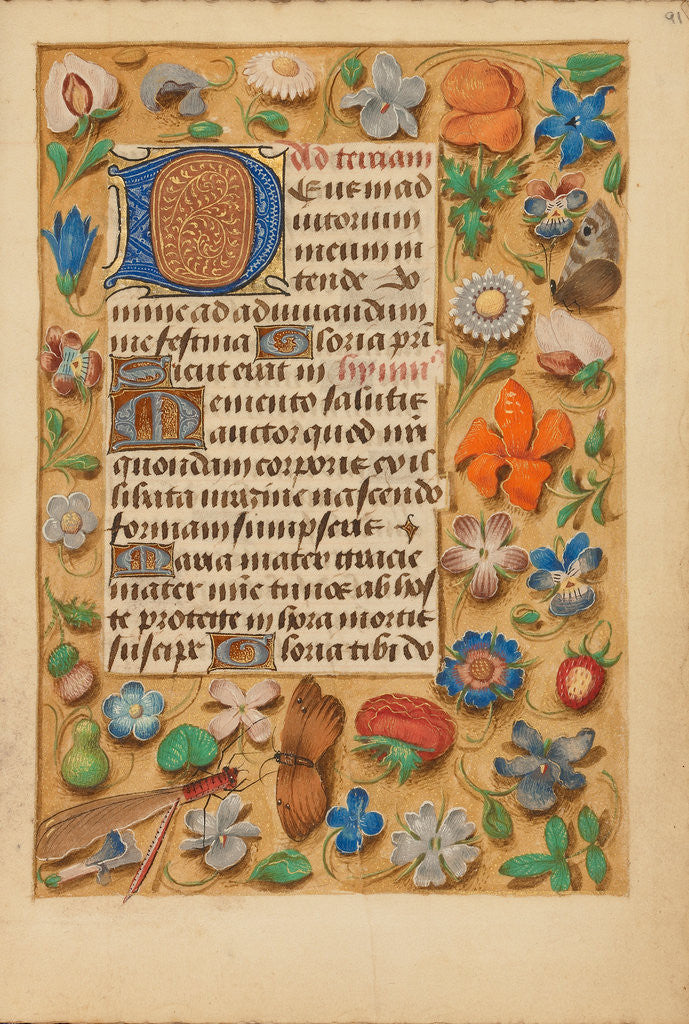 91
Ad terciam
Deus in ad
iutorium
meum in
tende Do
mine ad adiuuandum
me festina Gloria pri
Sicut erat in hymnus
Memento salutis
auctor quod nri
quondam corporis ex il
libata uirgine nascendo
formam sumpseris
Maria mater gracie
mater mie tu nos ab hos
te protege in hora mortis
suscipe Gloria tibi do